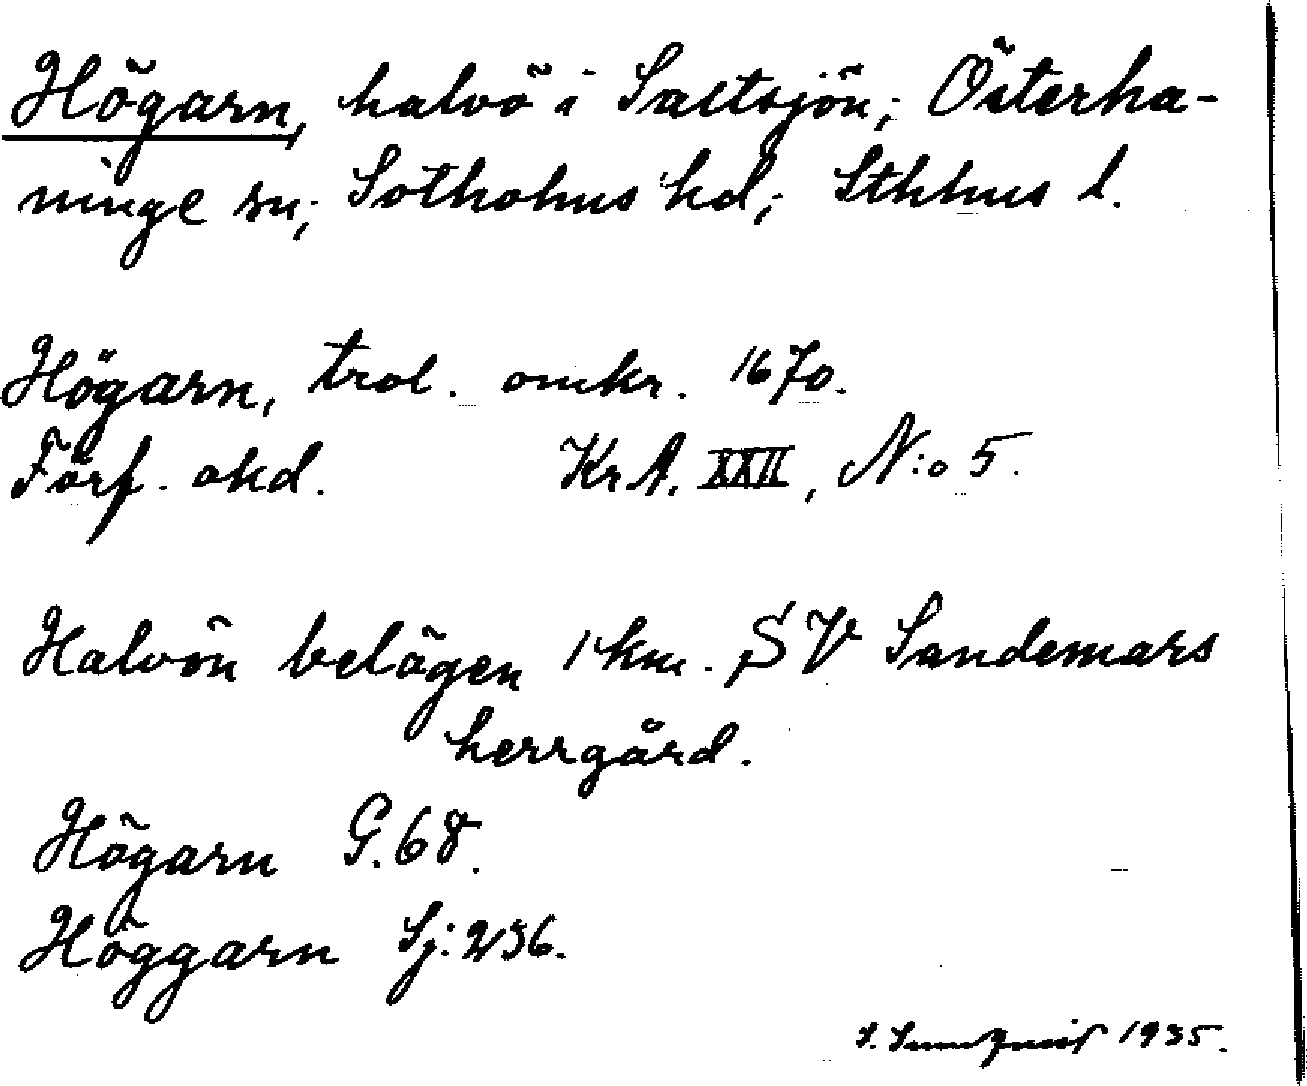 Högarn, halvö i Saltsjön; Österha-
ninge sn; Sotholms hd; Sthlms l.
Högarn, trol. omkr. 1670.
Förf. okd. KrA. XXII, N:o 5.
Halvön belägen 1 km. SV Sandemars
herrgård.
Högarn G. 68.
Höggarn Sj: 236.
1935.